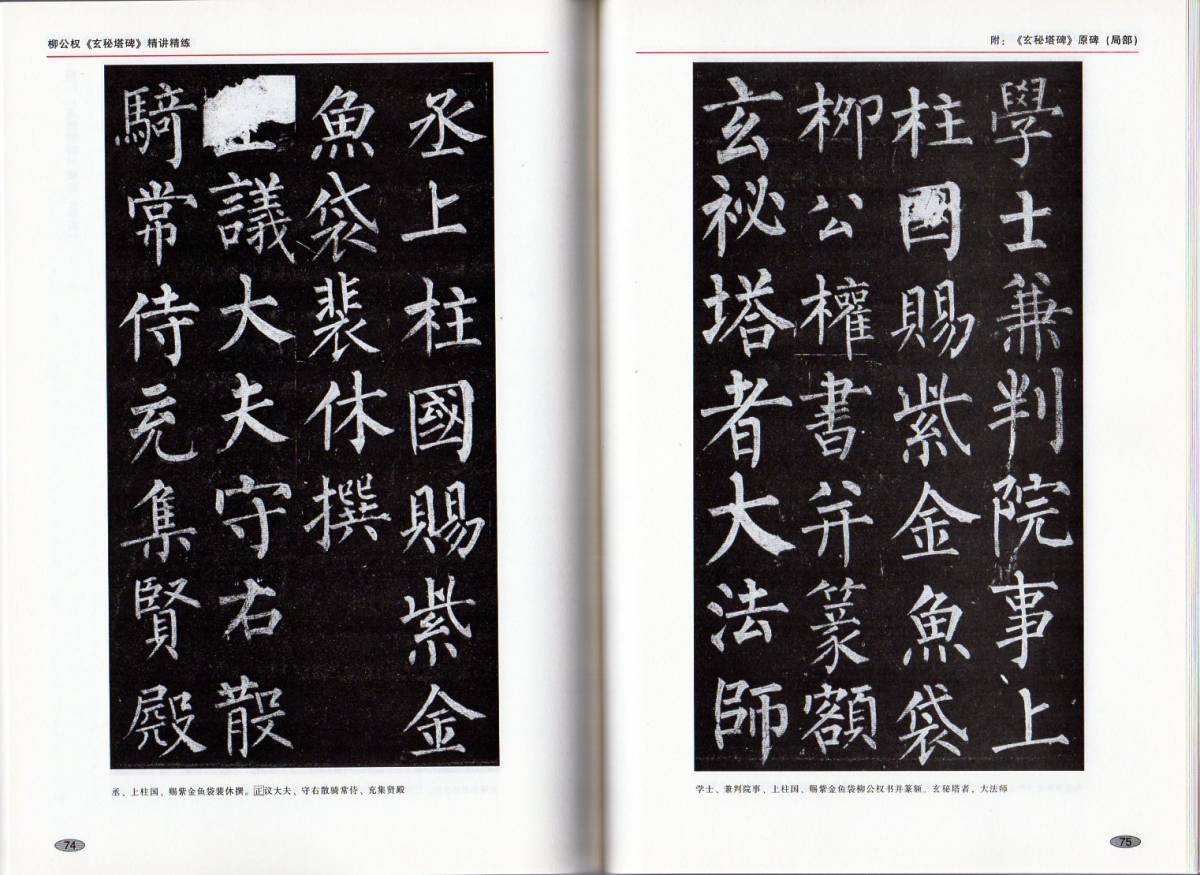 柳公权《玄秘塔碑》精讲精练
丞上柱國賜紫金
魚袋裴休撰
議大夫守右散
騎常侍充集賢殿
丞、上柱国、赐紫金鱼袋裴休撰。正议大夫、守右散骑常侍、充集贤殿
74
附：《玄秘塔碑》原碑（局部）
學士兼判院事上
柱國賜紫金魚袋
柳公權書并篆額
玄祕塔者大法師
学士、兼判院事、上柱国、赐紫金鱼袋柳公权书并篆额。玄秘塔者，大法师
75